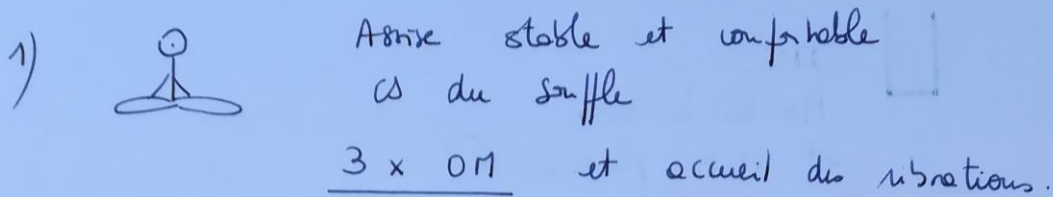 1) Assise stable et confortable
cs du souffle
3 x OM et accueil des vibrations.